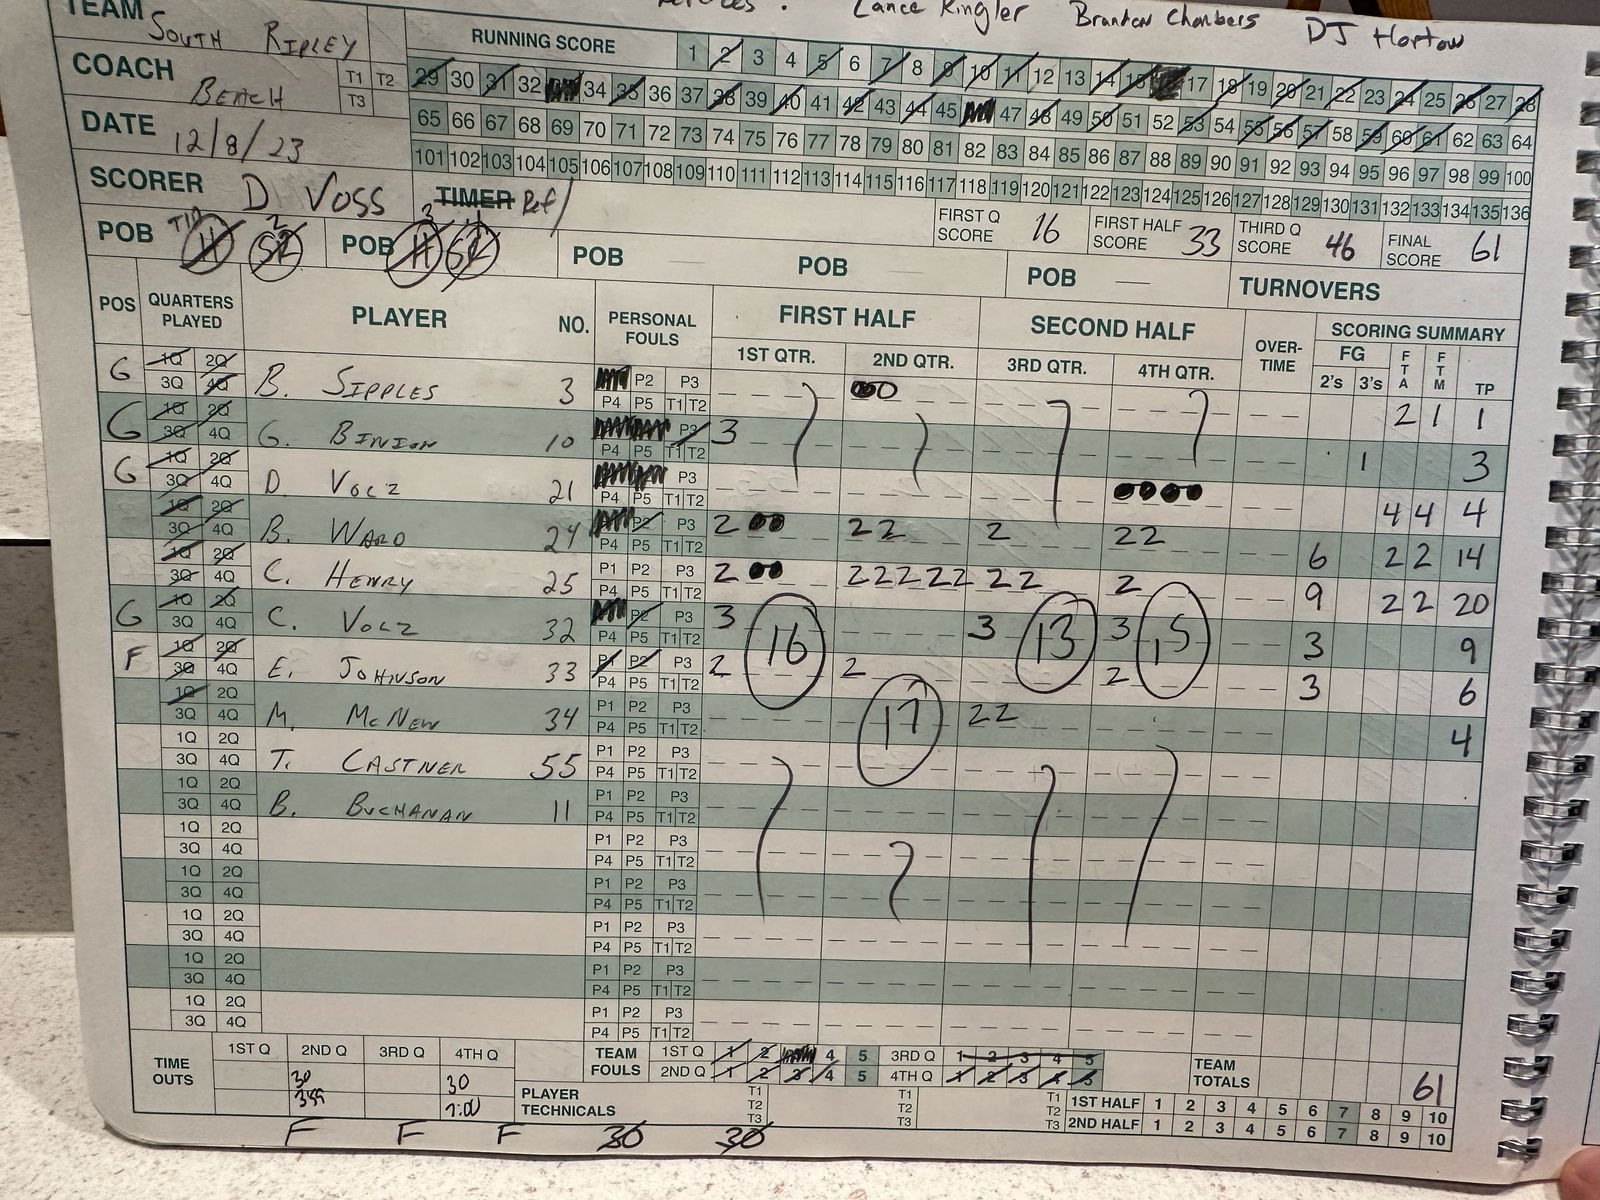 Lance Ringler Brandon Chambers DJ Horton
TEAM SOUTH RIPLEY
RUNNING SCORE 1 2 3 4 5 6 7 8 9 10 11 12 13 14 15 17 18 19 20 21 22 23 24 25 26 27 28
COACH BEACH T1 T2 T3
29 30 31 32 34 35 36 37 38 39 40 41 42 43 44 45 47 48 49 50 51 52 53 54 55 56 57 58 59 60 61 62 63 64
65 66 67 68 69 70 71 72 73 74 75 76 77 78 79 80 81 82 83 84 85 86 87 88 89 90 91 92 93 94 95 96 97 98 99 100
DATE 12/8/23
101 102 103 104 105 106 107 108 109 110 111 112 113 114 115 116 117 118 119 120 121 122 123 124 125 126 127 128 129 130 131 132 133 134 135 136
SCORER D VOSS TIMER Ref
FIRST Q SCORE 16 FIRST HALF SCORE 33 THIRD Q SCORE 46 FINAL SCORE 61
POB 11 52 POB 11 POB POB POB
TURNOVERS
POS QUARTERS PLAYED PLAYER NO. PERSONAL FOULS FIRST HALF SECOND HALF OVER-TIME SCORING SUMMARY
1ST QTR. 2ND QTR. 3RD QTR. 4TH QTR. FG 2'S 3'S FTA FTM TP
G 1Q 2Q 3Q 4Q B. SIPPLES 3 P2 P3 P4 P5 T1 T2 2 1 1
G 1Q 2Q 3Q 4Q G. BINION 10 P3 P4 P5 T1 T2 3 1 3
G 1Q 2Q 3Q 4Q D. VOLZ 21 P3 P4 P5 T1 T2 4 4 4
1Q 2Q 3Q 4Q B. WARD 24 P2 P3 P4 P5 T1 T2 2 22 2 22 6 2 2 14
1Q 2Q 3Q 4Q C. HENRY 25 P1 P2 P3 P4 P5 T1 T2 2 22222 22 2 9 2 2 20
G 1Q 2Q 3Q 4Q C. VOLZ 32 P2 P3 P4 P5 T1 T2 3 16 3 13 3 15 3 9
F 1Q 2Q 3Q 4Q E. JOHNSON 33 P1 P2 P3 P4 P5 T1 T2 2 2 2 3 6
1Q 2Q 3Q 4Q M. MCNEW 34 P1 P2 P3 P4 P5 T1 T2 17 22 4
1Q 2Q 3Q 4Q T. CASTNER 55 P1 P2 P3 P4 P5 T1 T2
1Q 2Q 3Q 4Q B. BUCHANAN 11 P1 P2 P3 P4 P5 T1 T2
1Q 2Q 3Q 4Q P1 P2 P3 P4 P5 T1 T2
1Q 2Q 3Q 4Q P1 P2 P3 P4 P5 T1 T2
1Q 2Q 3Q 4Q P1 P2 P3 P4 P5 T1 T2
1Q 2Q 3Q 4Q P1 P2 P3 P4 P5 T1 T2
1Q 2Q 3Q 4Q P1 P2 P3 P4 P5 T1 T2
TIME OUTS 1ST Q 2ND Q 3RD Q 4TH Q
30 30
1:00
TEAM FOULS 1ST Q 1 2 4 5 3RD Q 1 2 3 4 5
2ND Q 1 2 3 4 5 4TH Q 1 2 3 4 5
TEAM TOTALS 61
PLAYER TECHNICALS T1 T2 T3 T1 T2 T3 T1 T2 T3 T1 T2 T3
1ST HALF 1 2 3 4 5 6 7 8 9 10
2ND HALF 1 2 3 4 5 6 7 8 9 10
F F F 30 30